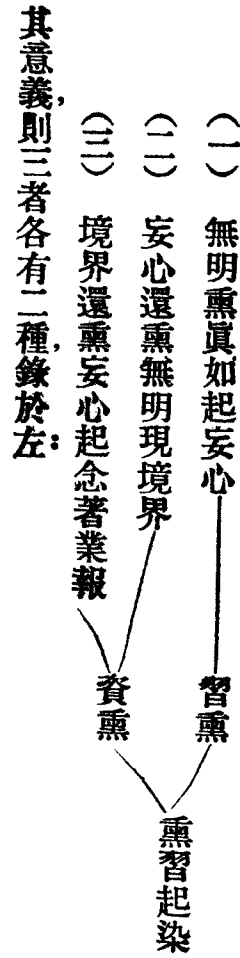 （一）　無明熏眞如起妄心
（二）　妄心還熏無明現境界
（三）　境界還熏妄心起念著業報
習熏
資熏
熏習起染
其意義，則三者各有二種，錄於左：